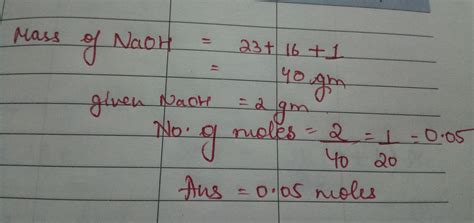 Mass of NaOH = 23 + 16 + 1
= 40 gm
given NaOH = 2 gm
No. of moles = 2/40 = 1/20 = 0.05
Ans = 0.05 moles